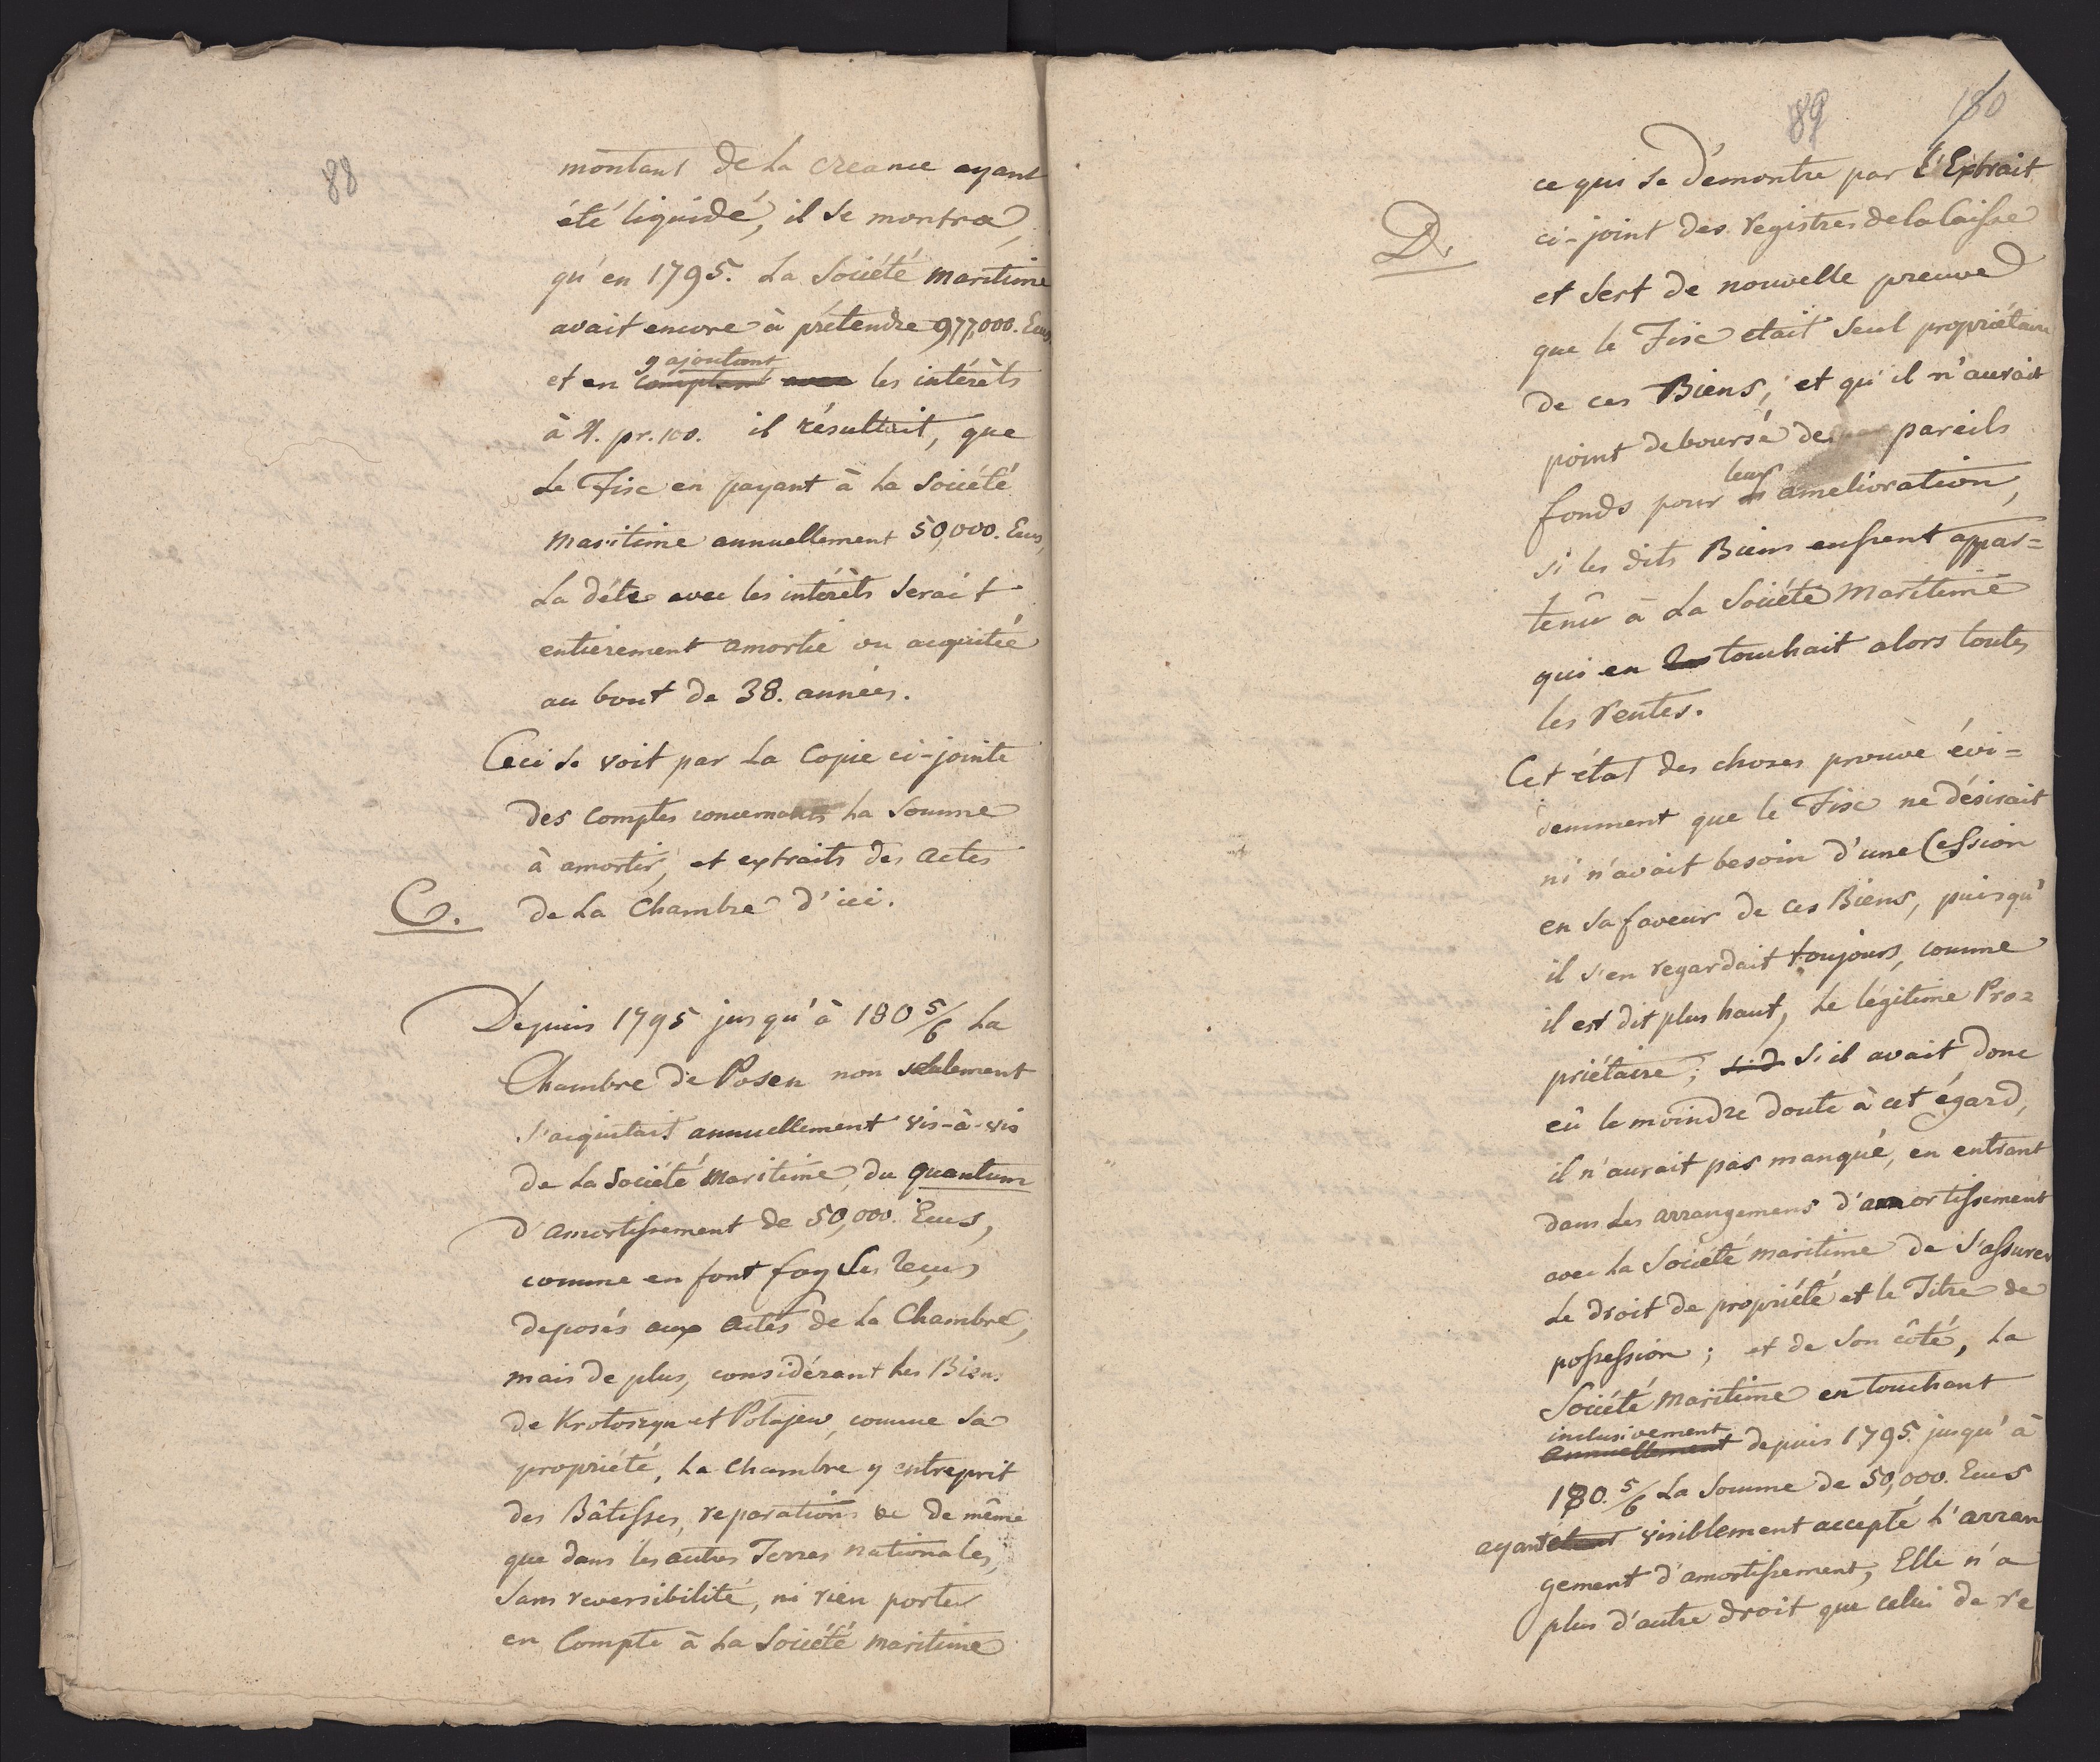 88
montant de la creance ayant
été liquidé, il se montra,
qu'en 1795. La Société maritime
avait encore à prétendre 977,000. Ecus,
y ajoutant
et en comptant avec les intérêts
à 4. pr. 100. il résultait, que
Le Fisc en payant à la Société
maritime annuellement 50,000. Ecus,
La déte avec les intérêts serait
entierement amortie ou acquitée
au bout de 38. années.
Ceci se voit par La Copie ci-jointe
des comptes concernants La Somme
à amortir, et extraits des actes
C. de La Chambre d'ici.
Depuis 1795 jusqu'à 180 5/6 La
Chambre de Posen non seulement
s'acquitait annuellement vis-à-vis
de La Société Maritime, du quantum
d'amortissement de 50,000. Ecus,
comme en font foy Les Reçus
deposés aux actes de La Chambre,
mais de plus, considérant Les Biens
de Krotoszyn et Polajew, comme sa
propriété, La Chambre y entreprit
des Bâtisses, reparations &c de même
que dans les autres Terres nationales,
sans reversibilité, ni rien porter
en Compte à La Société maritime
89
180
ce qui se démontre par l'Extrait
D. ci-joint des registres de la Caisse
et sert de nouvelle preuve
que le Fisc etait seul propriétaire
de ces Biens, et qu'il n'aurait
point deboursé de pareils
leur
fonds pour amelioration,
si les dits Biens eussent appar=
tenû à La Société Maritime
qui en touchait alors toutes
les rentes.
Cet état des choses prouve évi=
demment que le Fisc ne désirait
ni n'avait besoin d'une Cession
en sa faveur de ces Biens, puisqu'
il s'en regardait toujours, comme
il est dit plus haut, Le légitime Pro=
priétaire; s'il avait donc
eû le moindre doute à cet égard,
il n'aurait pas manqué, en entrant
dans Les arrangemens d'amortissement
avec La Société maritime de s'assurer
Le droit de propriété et le Titre de
possession; et de son côté, La
Société Maritime en touchant
inclusivement
annuellement depuis 1795. jusqu'à
180. 5/6 La Somme de 50,000. Ecus
ayant étant visiblement accepté L'arran
gement d'amortissement, Elle n'a
plus d'autre droit que celui de re